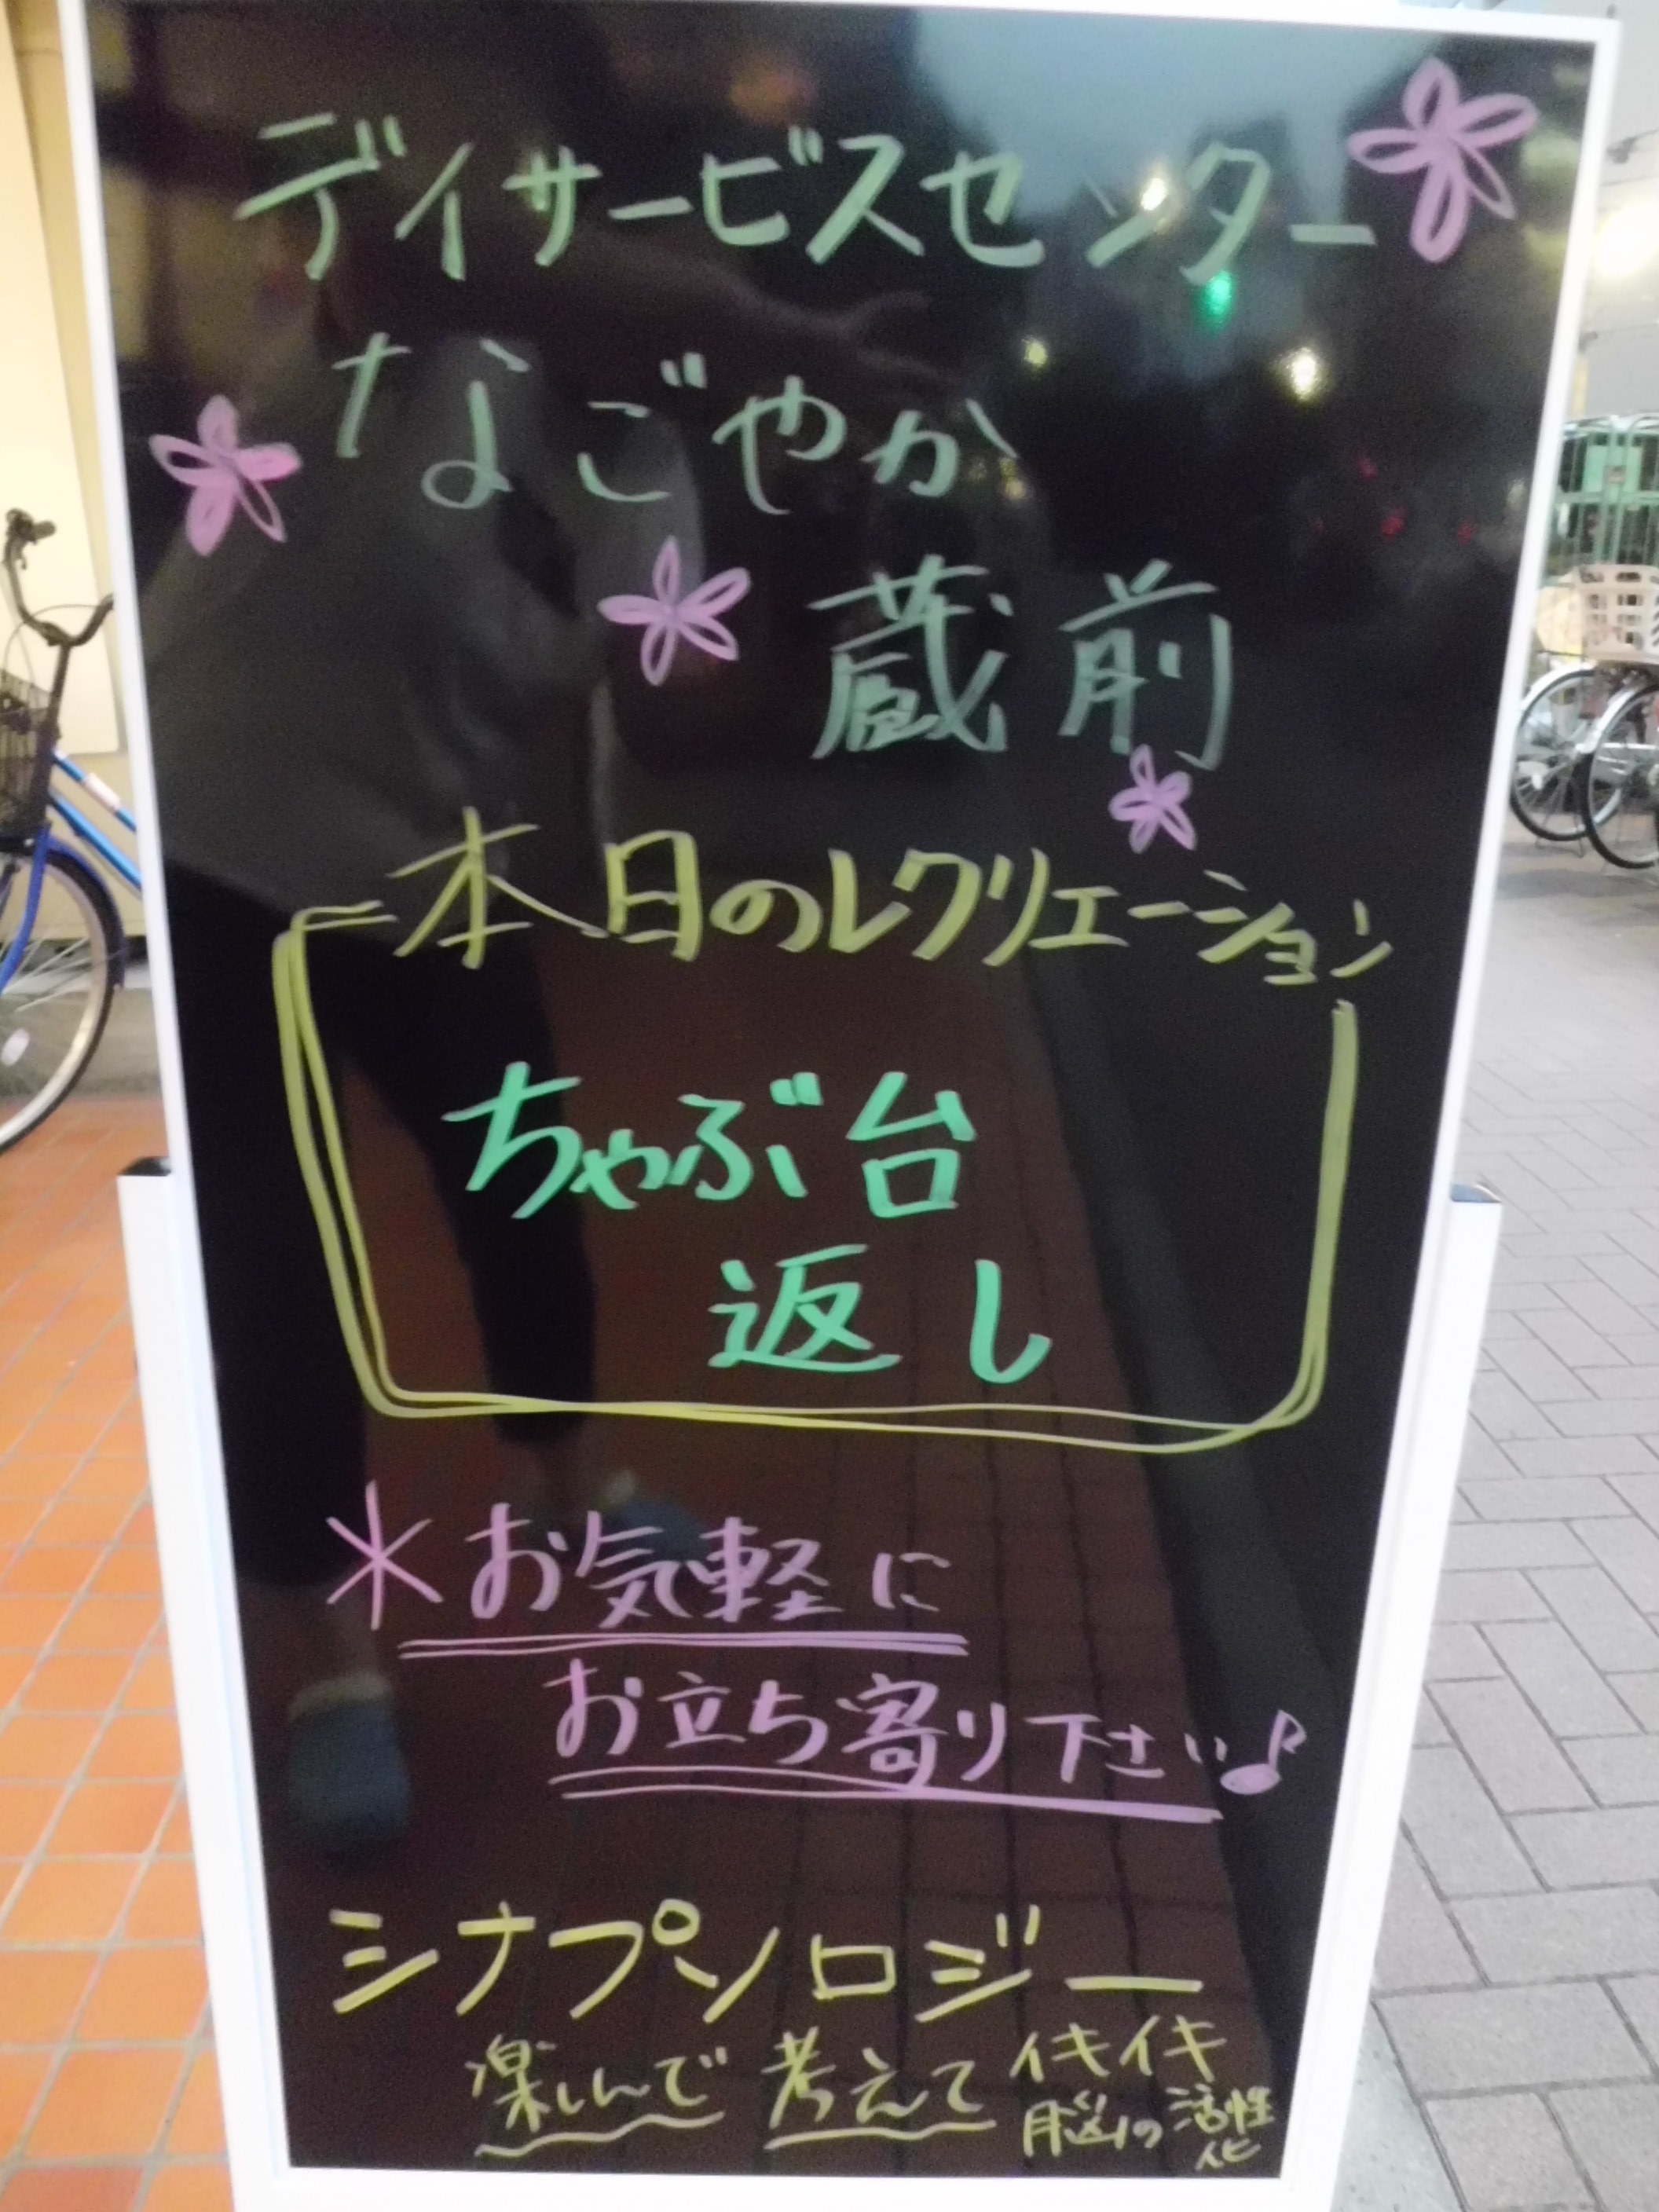 デイサービスセンター
なごやか
蔵前
本日のレクリエーション
ちゃぶ台
返し
＊お気軽に
お立ち寄り下さい♪
シナプソロジー
楽しんで 考えて イキイキ
脳の活性化